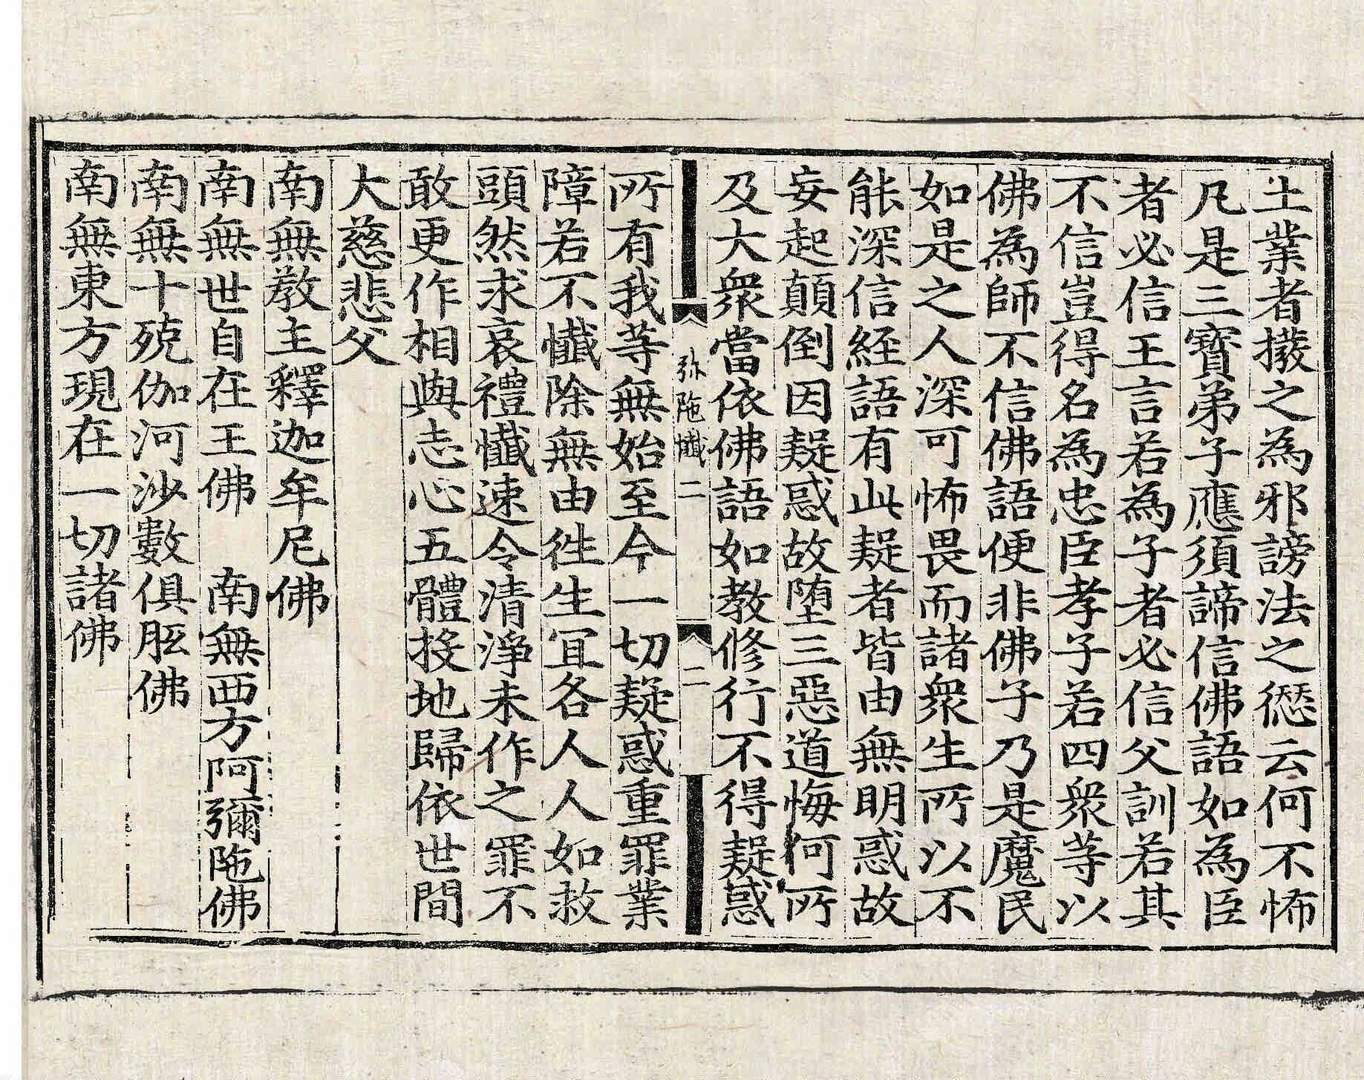 土業者撥之為邪謗法之愆云何不怖
凡是三寶弟子應須諦信佛語如為臣
者必信王言若為子者必信父訓若其
不信豈得名為忠臣孝子若四衆等以
佛為師不信佛語便非佛子乃是魔民
如是之人深可怖畏而諸衆生所以不
能深信経語有此疑者皆由無明惑故
妄起顛倒因疑惑故堕三惡道悔何所
及大衆當依佛語如教修行不得疑惑
弥陁懺二
二
所有我等無始至今一切疑惑重罪業
障若不懺除無由徃生冝各人人如救
頭然求哀禮懺速令清淨未作之罪不
敢更作相與志心五體投地歸依世間
大慈悲父
南無教主釋迦牟尼佛
南無世自在王佛　南無西方阿彌陁佛
南無十殑伽河沙數俱胝佛
南無東方現在一切諸佛